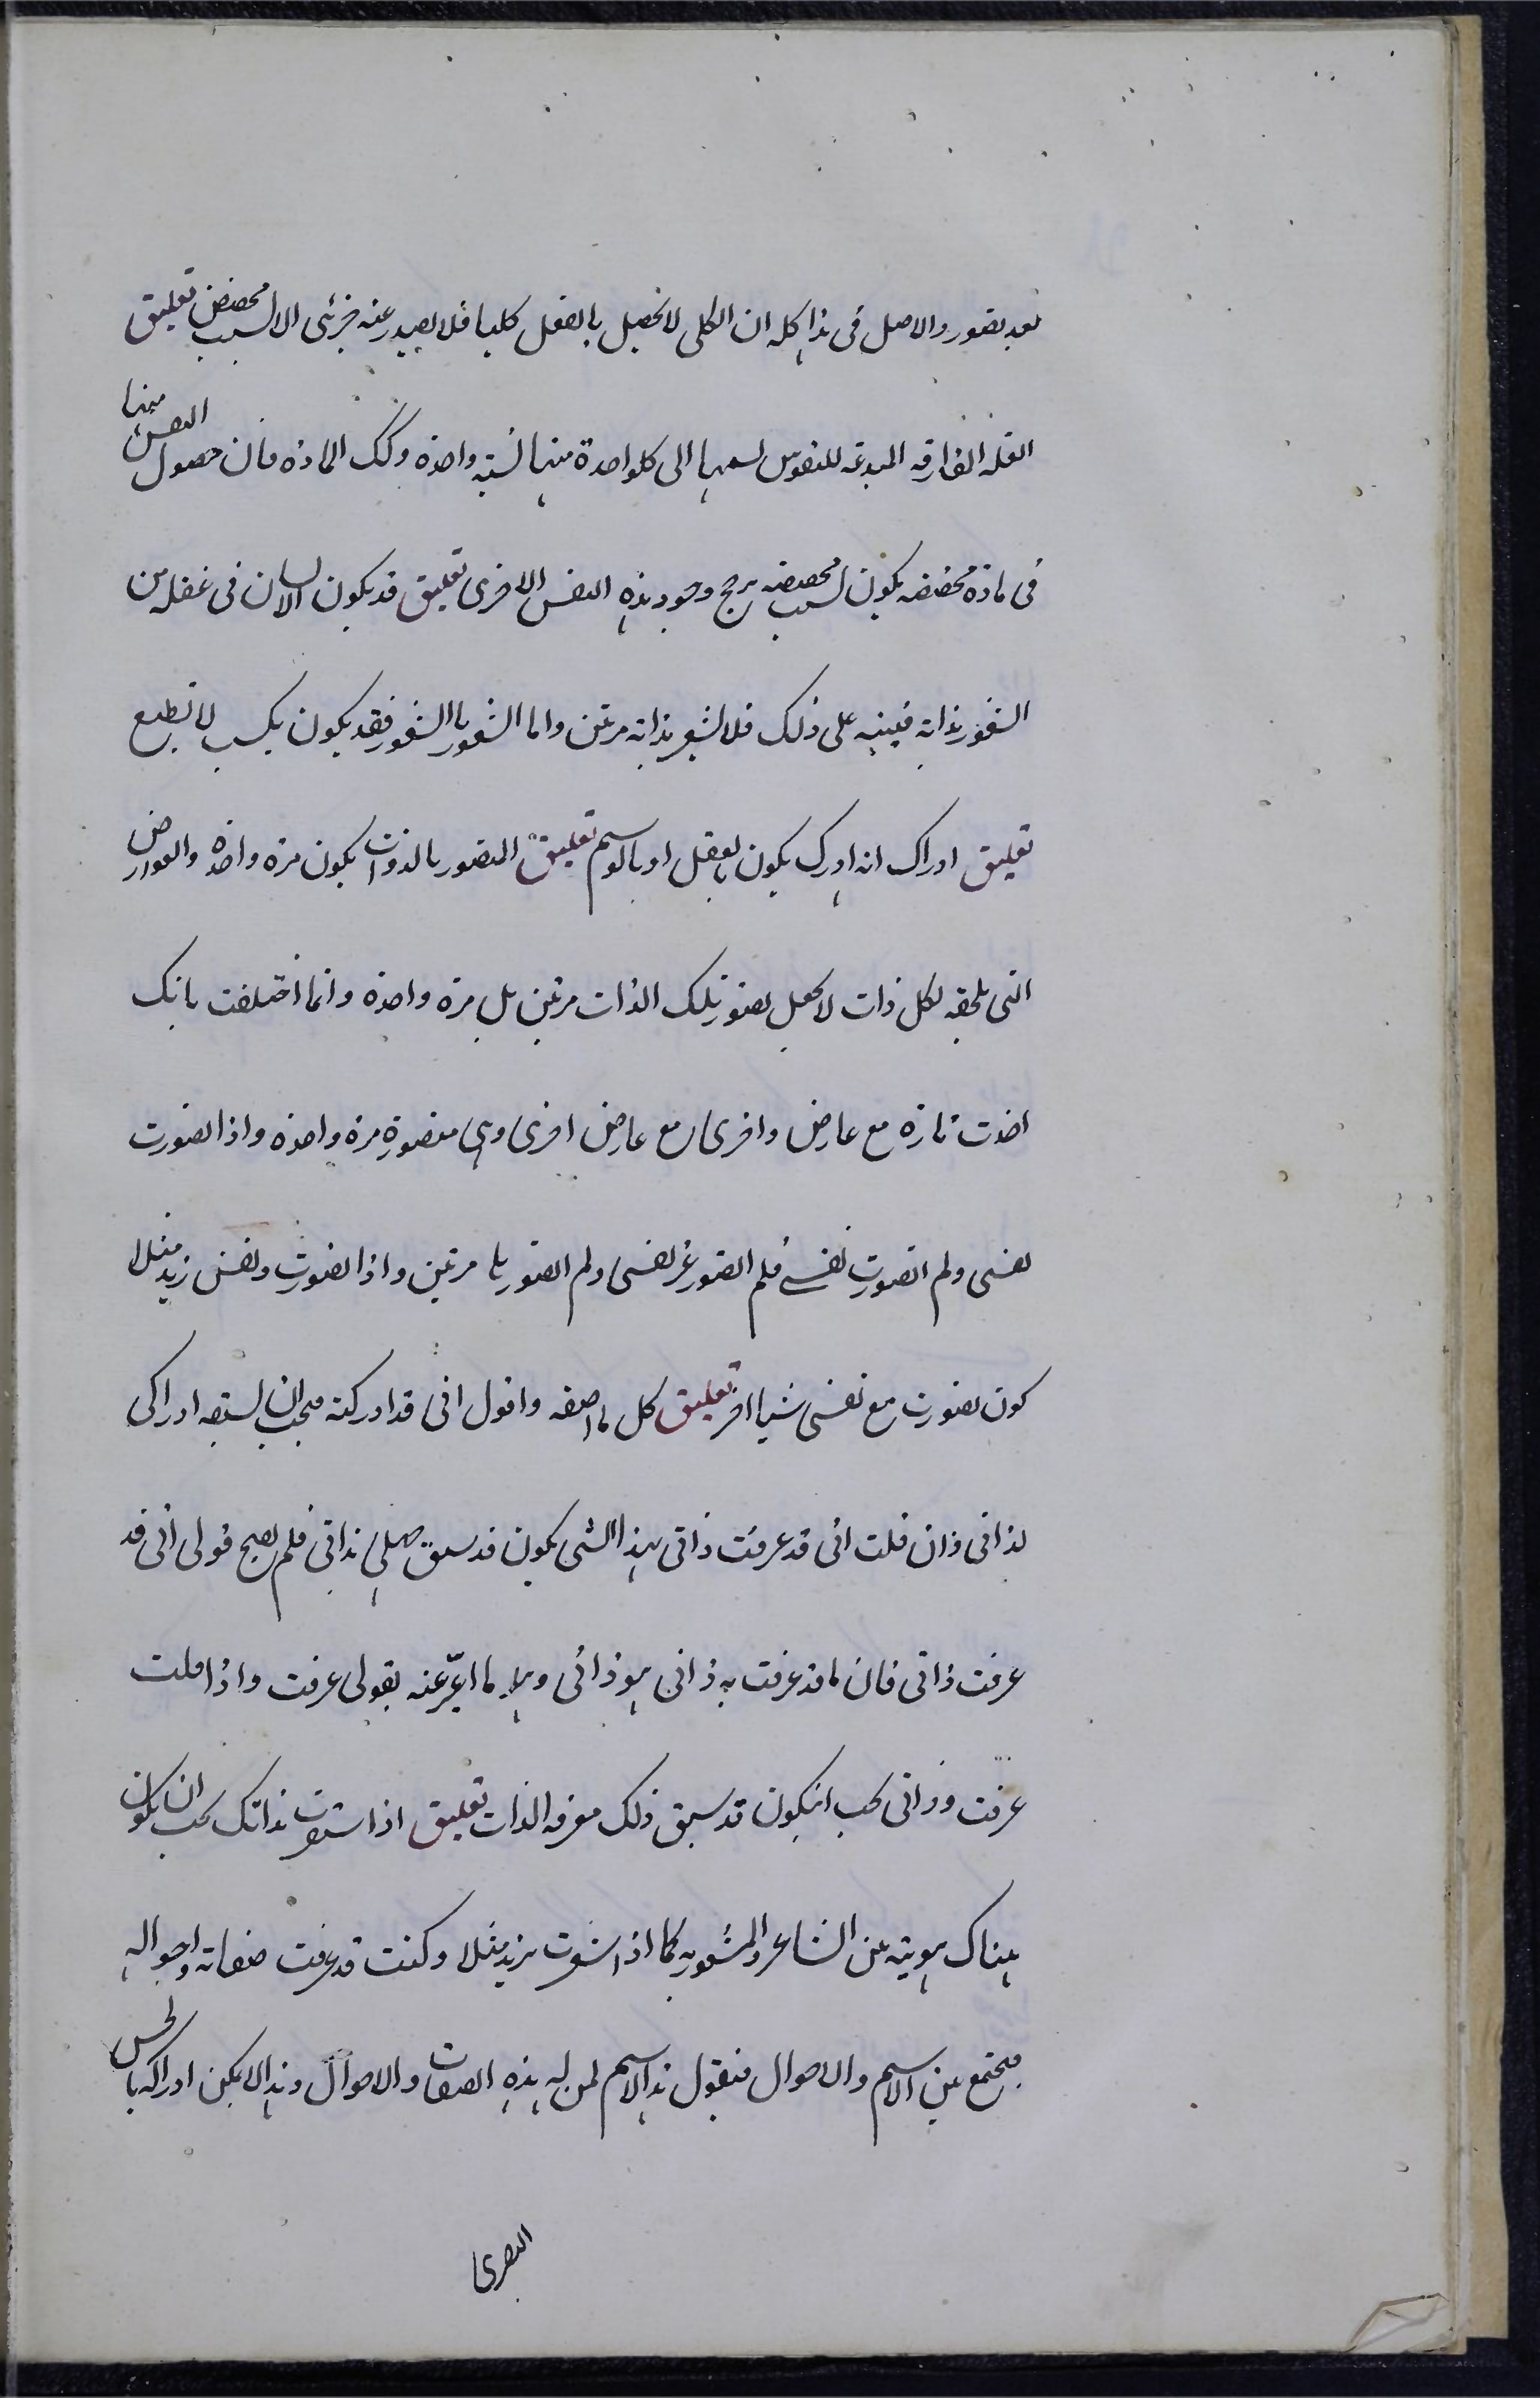 بعد تصور والاصل فی هذا کله ان الکلی لا یحصل بالفعل کلیا فلا یصدر عنه جزئی الا لسبب مخصص تعلیق
العله المفارقه المبدعه للنفوس نسبتها الی کلواحدة منها نسبه واحده وکک الماده فان حصول النفس منها
فی ماده مخصصه یکون لسبب مخصصه یرجح وجود هذه النفس الاخری تعلیق قد یکون الانسان فی غفله من
الشعور بذاته فینبه علی ذلک فلا یشعر بذاته مرتین واما الشعور بالشعور فقد یکون بکسب لا بطبع
تعلیق ادراک انه ادرک یکون بالعقل او بالوهم تعلیق التصور بالذوات یکون مره واحده والعوارض
التی تلحقه لکل ذات لا تجعل تصور تلک الذات مرتین بل مره واحده وانما اختلفت بانک
اخذت تارة مع عارض واخری مع عارض اخری وهی متصورة مرة واحده واذا تصورت
نفسی ولم اتصورت نفسی فلم اتصور غیر نفسی ولم اتصورها مرتین واذا تصورت ونفس زید مثلا
کون تصورت مع نفسی شیا اخر تعلیق کل ما اصفه واقول انی قد ادرکته فیجب ان یسبقه ادراکی
لذاتی فان قلت انی قد عرفت ذاتی بهذا الشی یکون قد سبق جهلی بذاتی فلم یصح قولی انی قد
عرفت ذاتی فان ما قد عرفت به ذاتی هو ذاتی وهو ما اعبر عنه بقولی عرفت واذا قلت
عرفت وذاتی یجب انیکون قد سبق ذلک معرفه الذات تعلیق اذا شعرت بذاتک یجب ان یکون
هناک هویته بین الشاعر والمشعور به کما اذا شعرت بزید مثلا وکنت قد عرفت صفاته واحواله
فیجتمع بین الاسم والاحوال فیقول هذا الاسم لمن له هذه الصفات والاحوال وهذا لا یمکن ادراکه بالحس
البصری